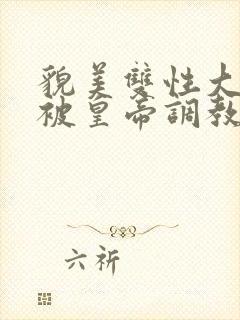 貌美雙性大
被皇帝調教
六祈